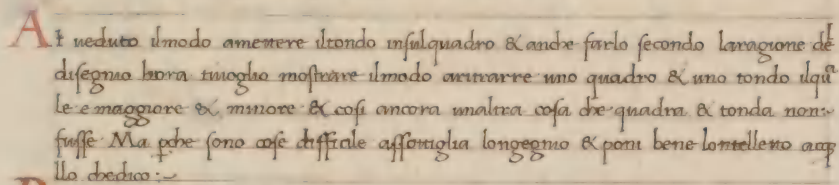 Ai ueduto ilmodo amettere iltondo insulquadro & anche farlo secondo laragione del
disegnio hora tiuoglio mostrare ilmodo aritrarre uno quadro & uno tondo ilqua
le e maggiore & minore & cosi ancora unaltra cosa che quadra & tonda non
fusse Ma pche sono cose difficile assottiglia longegnio & poni bene lontelletto aque
llo chedico:~